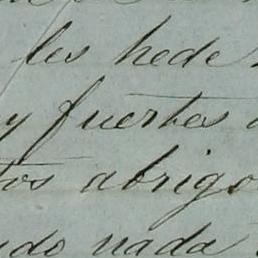 les hede
y fuertes
tos abrigo
ndo nada